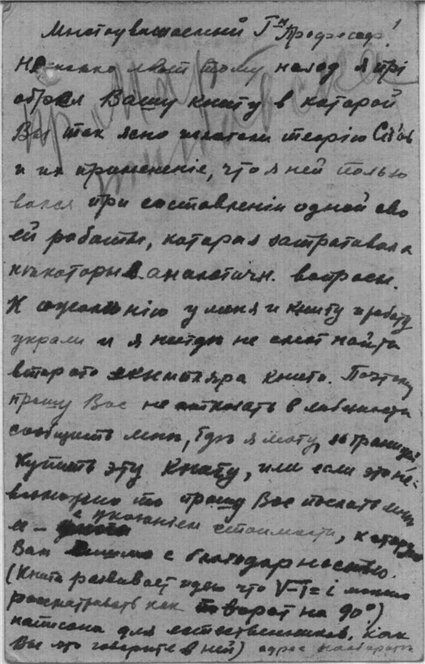 1
Многоуважаемый Гⁿ Профессор!
Несколько лет тому назад я прі
обрел Вашу книгу в которой
Вы так ясно изложили теорію
и их примененіе, что я ней пользо
вался при составленіи одной сво
ей работы, которая затрагивала
некоторые аналитичн. вопросы.
К сожаленію у меня и книгу и работу
украли и я нигде не смог найти
второго экземпляра книги. Поэтому
прошу Вас не отказать в любезности
сообщить мне, где я могу, за границ
купить эту книгу, или если это не-
возможно то прошу Вас послать мне
с указанием стоимости, которую
Вам с благодарностью.
(Книга развивает идею что √-1 = i можно
рассматривать как поворот на 90°)
написана для естественников, как
Вы это говорите в ней) адрес на обороте